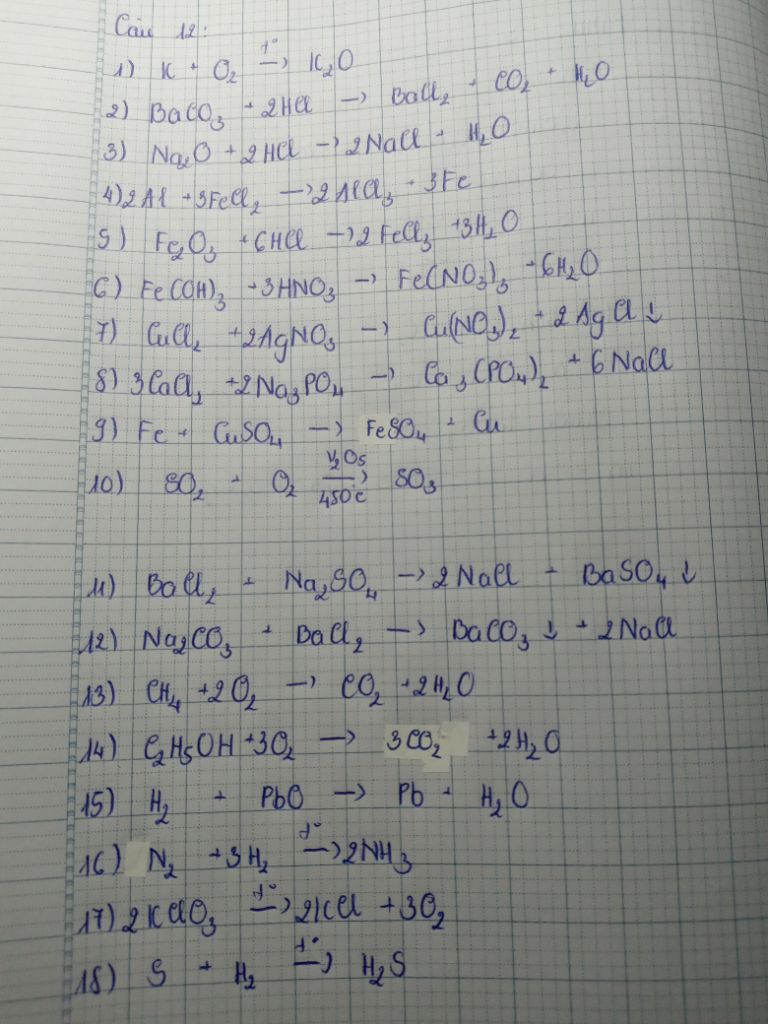 Câu 12:
1) K + O₂ –t°→ K₂O
2) BaCO₃ + 2HCl → BaCl₂ + CO₂ + H₂O
3) Na₂O + 2HCl → 2NaCl + H₂O
4) 2Al + 3FeCl₂ → 2AlCl₃ + 3Fe
5) Fe₂O₃ + 6HCl → 2FeCl₃ + 3H₂O
6) Fe(OH)₃ + 3HNO₃ → Fe(NO₃)₃ + 6H₂O
7) CuCl₂ + 2AgNO₃ → Cu(NO₃)₂ + 2AgCl↓
8) 3CaCl₂ + 2Na₃PO₄ → Ca₃(PO₄)₂ + 6NaCl
9) Fe + CuSO₄ → FeSO₄ + Cu
10) SO₂ + O₂ –V₂O₅, 450°C→ SO₃
11) BaCl₂ + Na₂SO₄ → 2NaCl + BaSO₄↓
12) Na₂CO₃ + BaCl₂ → BaCO₃↓ + 2NaCl
13) CH₄ + 2O₂ → CO₂ + 2H₂O
14) C₂H₅OH + 3O₂ → 3CO₂ + 2H₂O
15) H₂ + PbO → Pb + H₂O
16) N₂ + 3H₂ –t°→ 2NH₃
17) 2KClO₃ –t°→ 2KCl + 3O₂
18) S + H₂ –t°→ H₂S